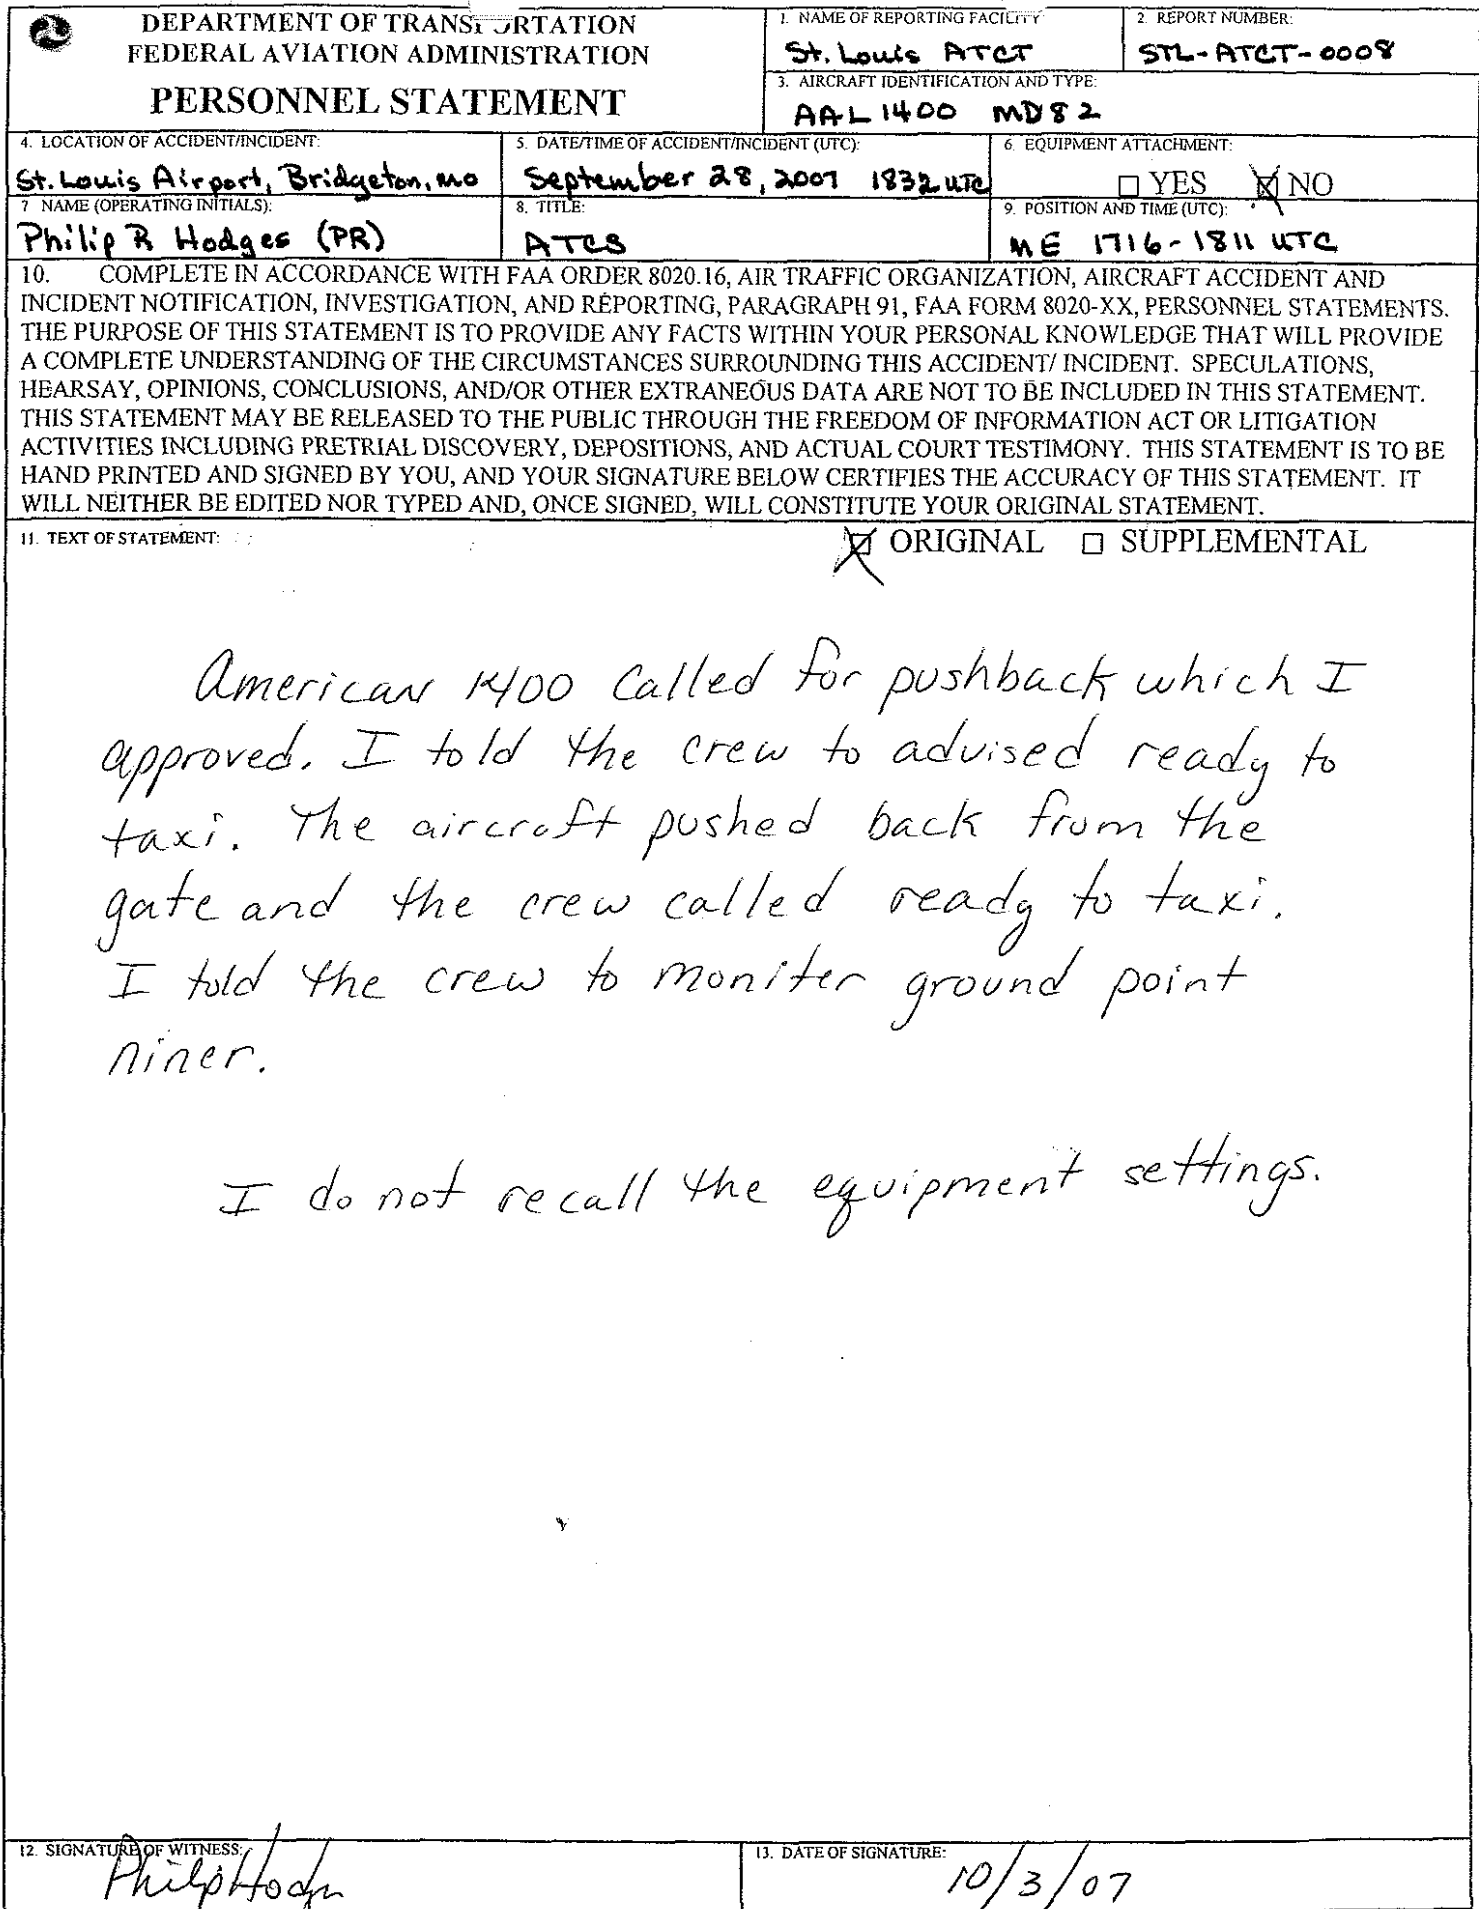 DEPARTMENT OF TRANS RTATION
FEDERAL AVIATION ADMINISTRATION
PERSONNEL STATEMENT
1. NAME OF REPORTING FACILITY
St. Louis ATCT
2. REPORT NUMBER:
STL-ATCT-0008
3. AIRCRAFT IDENTIFICATION AND TYPE:
AAL 1400 MD82
4. LOCATION OF ACCIDENT/INCIDENT:
St. Louis Airport, Bridgeton, MO
5. DATE/TIME OF ACCIDENT/INCIDENT (UTC):
September 28, 2007 1832 UTC
6. EQUIPMENT ATTACHMENT:
☐ YES ☒ NO
7 NAME (OPERATING INITIALS):
Philip R Hodges (PR)
8. TITLE:
ATCS
9. POSITION AND TIME (UTC):
ME 1716-1811 UTC
10. COMPLETE IN ACCORDANCE WITH FAA ORDER 8020.16, AIR TRAFFIC ORGANIZATION, AIRCRAFT ACCIDENT AND
INCIDENT NOTIFICATION, INVESTIGATION, AND REPORTING, PARAGRAPH 91, FAA FORM 8020-XX, PERSONNEL STATEMENTS.
THE PURPOSE OF THIS STATEMENT IS TO PROVIDE ANY FACTS WITHIN YOUR PERSONAL KNOWLEDGE THAT WILL PROVIDE
A COMPLETE UNDERSTANDING OF THE CIRCUMSTANCES SURROUNDING THIS ACCIDENT/ INCIDENT. SPECULATIONS,
HEARSAY, OPINIONS, CONCLUSIONS, AND/OR OTHER EXTRANEOUS DATA ARE NOT TO BE INCLUDED IN THIS STATEMENT.
THIS STATEMENT MAY BE RELEASED TO THE PUBLIC THROUGH THE FREEDOM OF INFORMATION ACT OR LITIGATION
ACTIVITIES INCLUDING PRETRIAL DISCOVERY, DEPOSITIONS, AND ACTUAL COURT TESTIMONY. THIS STATEMENT IS TO BE
HAND PRINTED AND SIGNED BY YOU, AND YOUR SIGNATURE BELOW CERTIFIES THE ACCURACY OF THIS STATEMENT. IT
WILL NEITHER BE EDITED NOR TYPED AND, ONCE SIGNED, WILL CONSTITUTE YOUR ORIGINAL STATEMENT.
11. TEXT OF STATEMENT:
☒ ORIGINAL ☐ SUPPLEMENTAL
American 1400 called for pushback which I
approved. I told the crew to advised ready to
taxi. The aircraft pushed back from the
gate and the crew called ready to taxi.
I told the crew to moniter ground point
niner.
I do not recall the equipment settings.
12. SIGNATURE OF WITNESS:
Philip Hodges
13. DATE OF SIGNATURE:
10/3/07